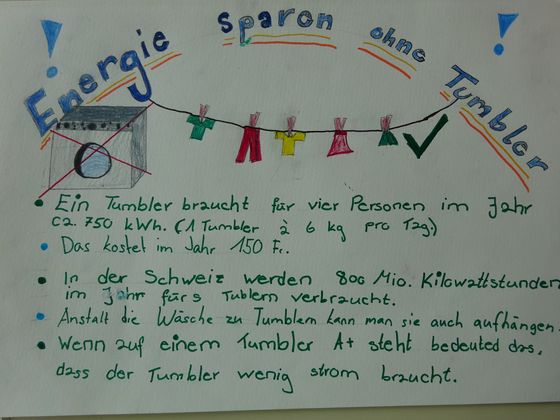 Energie sparen ohne Tumbler
Ein Tumbler braucht für vier Personen im Jahr
ca. 750 kWh. (1 Tumbler à 6 kg pro Tag.)
Das kostet im Jahr 150 Fr.
In der Schweiz werden 800 Mio. Kilowattstunden
im Jahr fürs Tublern verbraucht.
Anstalt die Wäsche zu Tumblern kann man sie auch aufhängen.
Wenn auf einem Tumbler A+ steht bedeuted das,
dass der Tumbler wenig strom braucht.